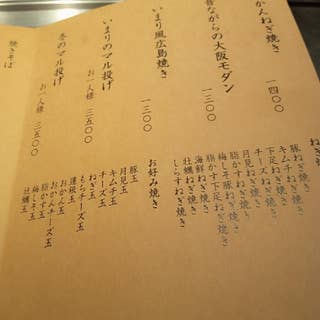 かんねぎ焼き 一四〇〇
昔ながらの大阪モダン 一三〇〇
いまり風広島焼き 一三〇〇
いまりのマル投げ お一人様 三五〇〇
冬のマル投げ お一人様 三五〇〇
焼きそば
ねぎ焼
豚ねぎ焼き
キムチねぎ焼き
下足ねぎ焼き
チーズねぎ焼き
月見ねぎ焼き
脂かすねぎ焼き
梅しそ豚ねぎ焼き
脂かす下足ねぎ焼き
海鮮ねぎ焼き
牡蠣ねぎ焼き
しらすねぎ焼き
お好み焼き
豚玉
月見玉
キムチ玉
チーズ玉
ねぎ玉
もちチーズ玉
蓮根玉
おかん玉
おかんチーズ玉
脂かす玉
梅しそ玉
牡蠣玉